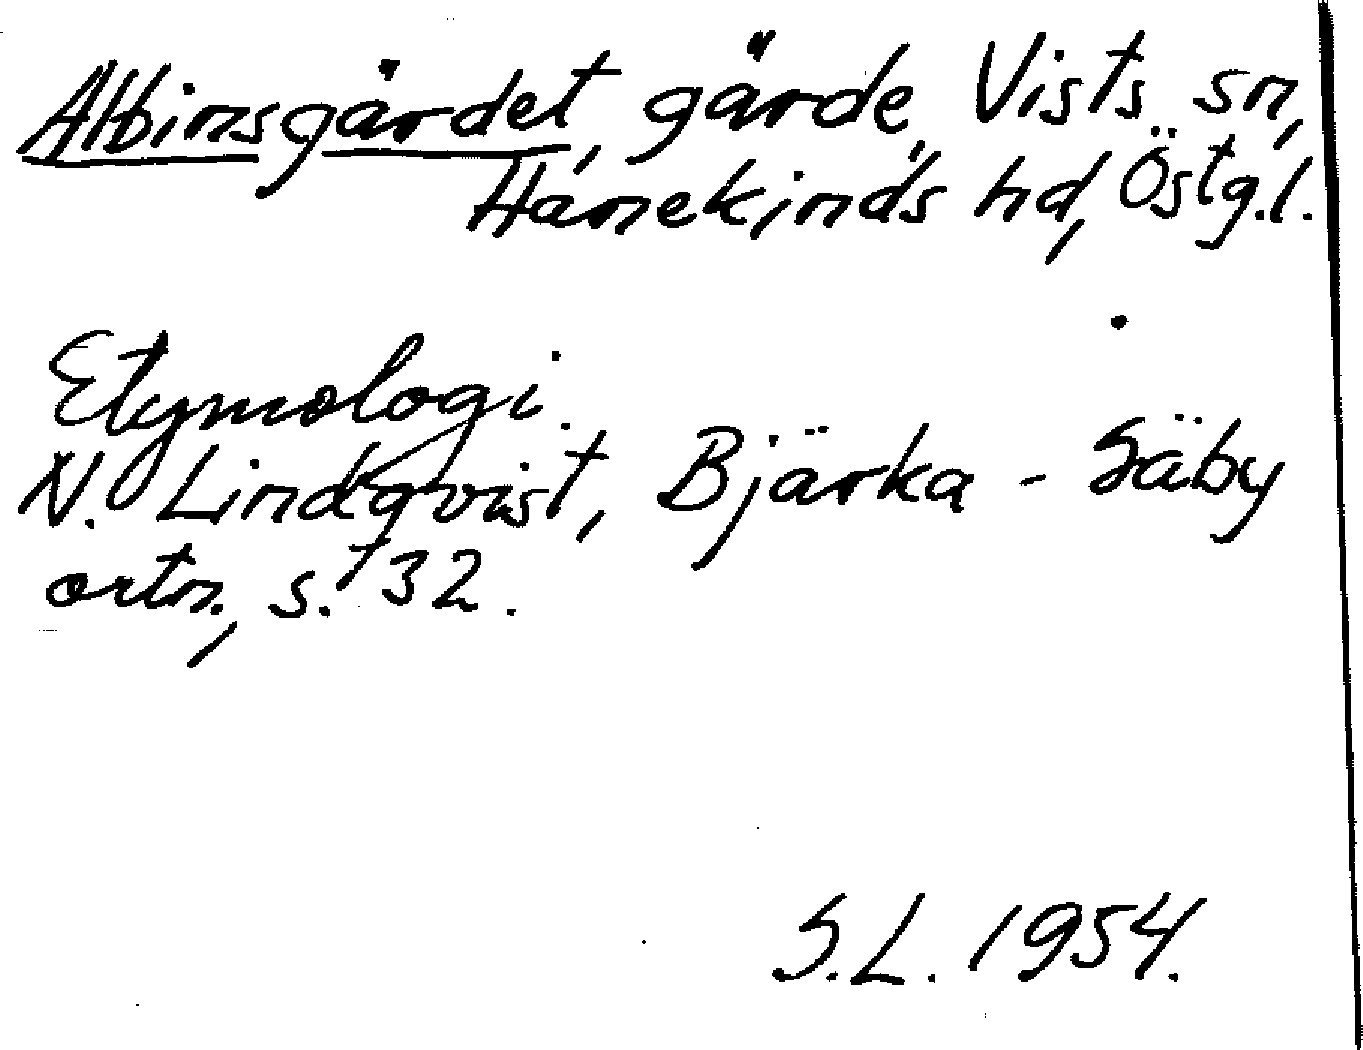 Albinsgärdet, gärde, Vists sn,
Hanekinds hd, Östg.l.
Etymologi.
N. Lindqvist, Bjärka-Säby
ortn., s. 132.
S.L. 1954.